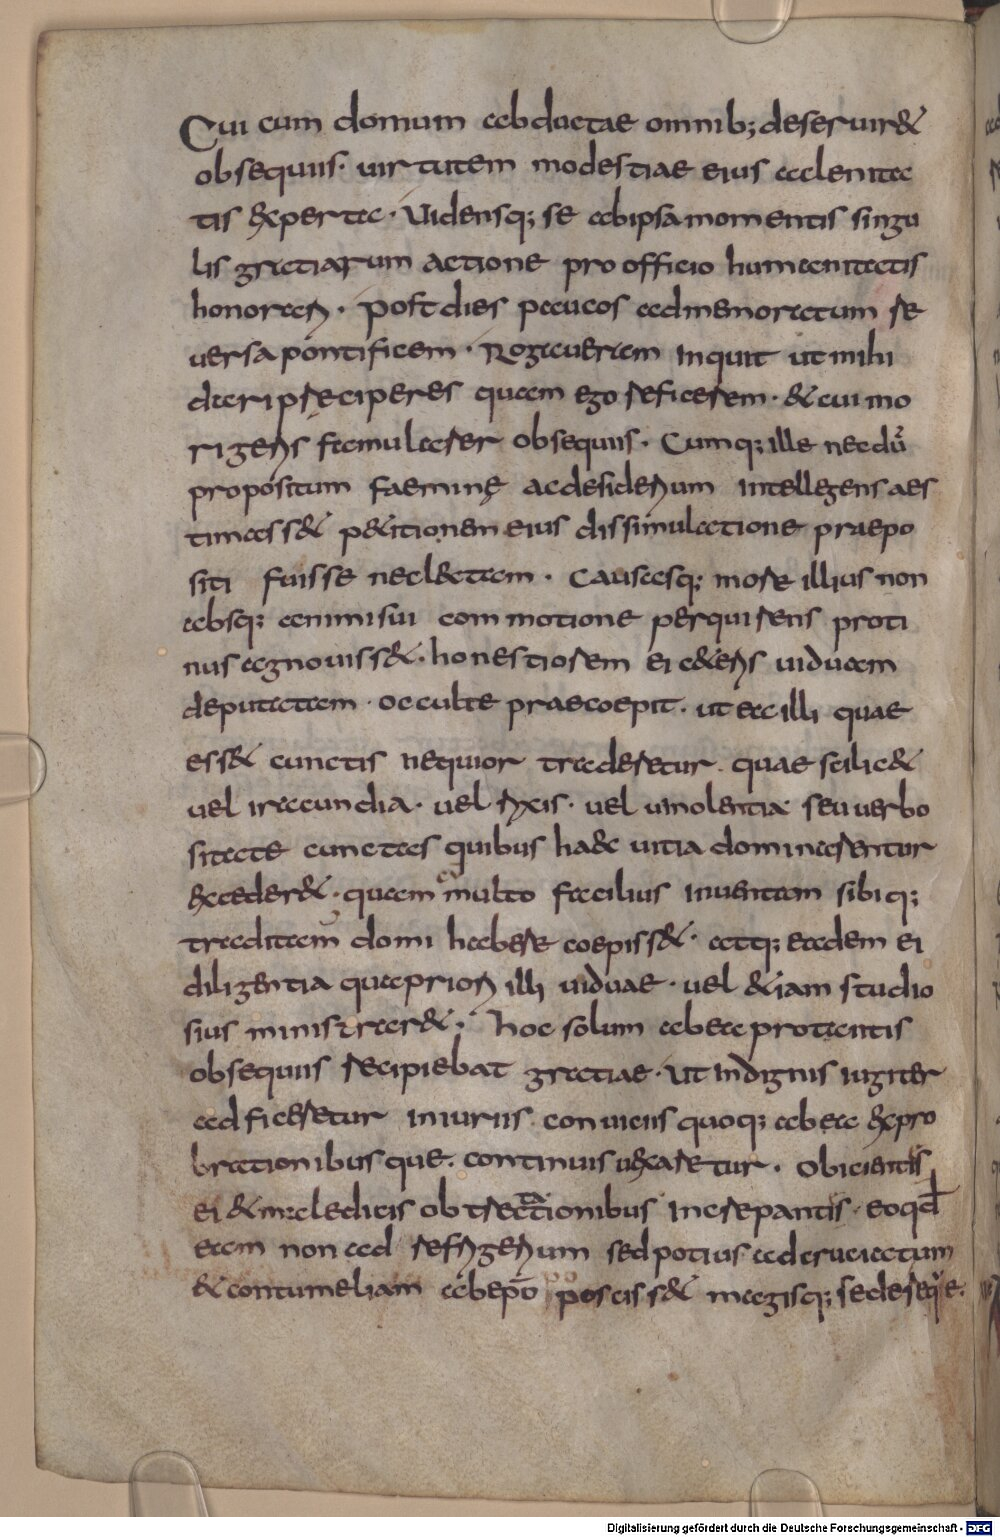 Cui cum domum abductae omnib; deseruir&
obsequiis· uirtutem modestiae eius aclenita
tis experta· Uidensq; se ab ipsa momentis singu
lis gratiarum actione pro officio humanitatis
honorari· Post dies paucos ad memoratum re
uersa pontificem· Rogaueram inquit ut mihi
dari preciperes quam ego reficerem· & cui mo
rigeris famularer obsequiis· Cumq; ille necdū
propositum faeminę ac desiderium intellegens aes
timass& p&itionem eius dissimulatione praepo
siti fuisse necl&tam· Causasq; more illius non
absq; animi sui commotione perquirens proti
nus agnouiss&· honestiorem ei c&eris uiduam
deputatam· occulte praecoepit· ut ea illi quae
ess& cunctis nequior trader&ur· quae scilic&
uel iracundia· uel rixis· uel uinolentia seu uerbo
sitate cunctas quibus haec uitia dominarentur
exceder&· quam multo facilius inuentam sibiq;
traditam domi habere coepiss&· atq; eadem ei
diligentia qua priori illi uiduae· uel &iam studio
sius ministrar&· hoc solum ab ea pro tantis
obsequiis recipiebat gratiae· Ut indignis iugiter
adficeretur iniuriis conuiciis quoq; ab ea expro
brationibusque· continuis uexaretur· Obicientis
ei & maledicis obtrectationibus increpantis· eo qđ
eam non ad refrigerium sed potius ad cruciatum
& contumeliam ab ep̄o poposciss& magisq; se de req̇e·
Digitalisierung gefördert durch die Deutsche Forschungsgemeinschaft - DFG